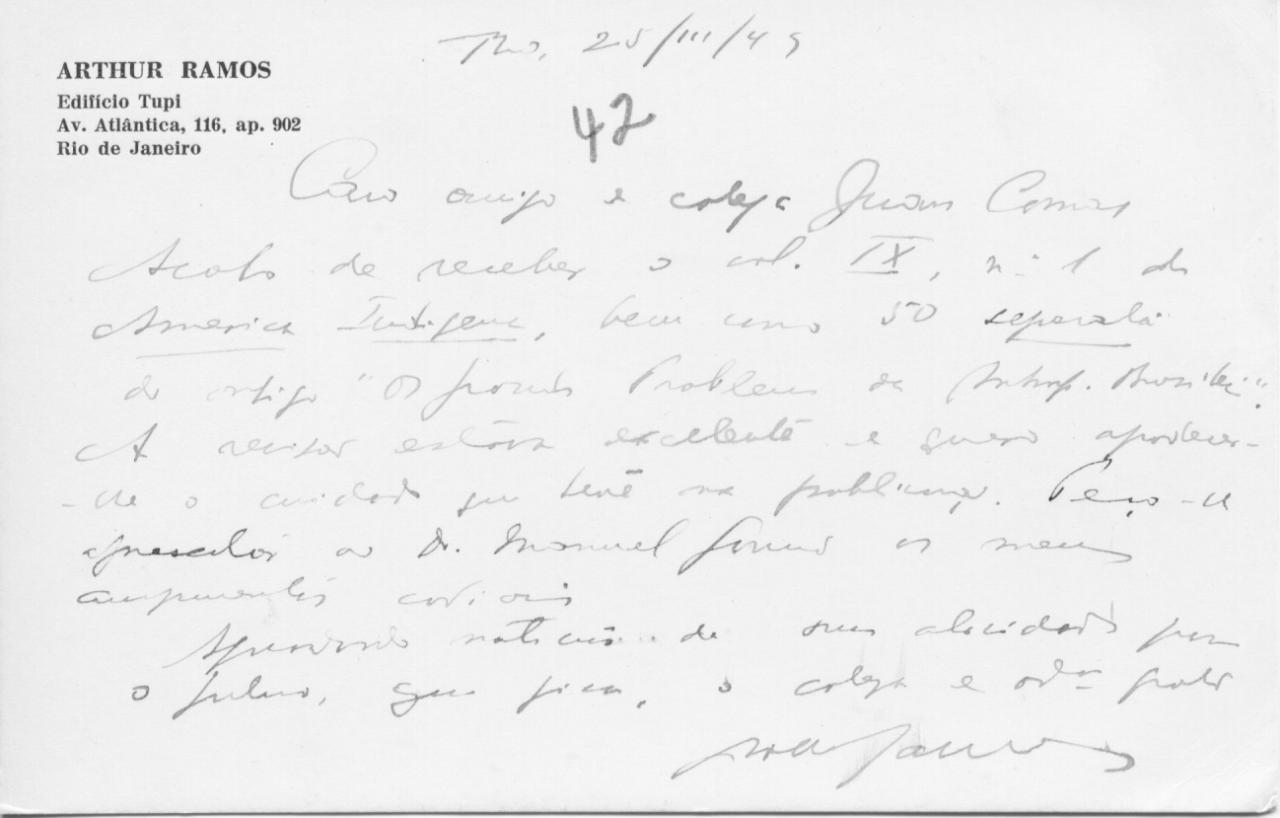 Rio, 25/III/49
ARTHUR RAMOS
Edifício Tupi
Av. Atlântica, 116, ap. 902
Rio de Janeiro
42
Caro amigo e colega Juan Comas
Acabo de receber o vol. IX, nº 1 de
America Indigena, bem como 50 separatas
do artigo "Os grandes Problemas da Antrop. Brasileira".
A revisão estava excelente e quero agradecer-
-lhe o cuidado que teve na publicação. Peço-lhe
apresentar ao Dr. Manuel Gamio os meus
cumprimentos cordiais
Aguardando notícias de suas atividades para
o futuro, que fica, o colega e adm.or grato
Arthur Ramos